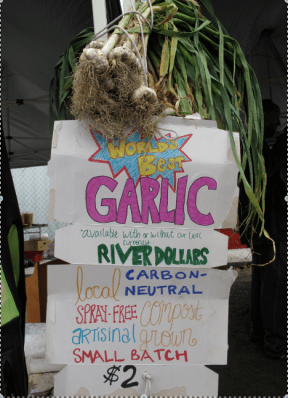 WORLD'S
BEST
GARLIC
*available with or without our local
currency:
RIVER DOLLARS
local CARBON-
NEUTRAL
SPRAY-FREE compost
artisinal grown
SMALL BATCH
$2